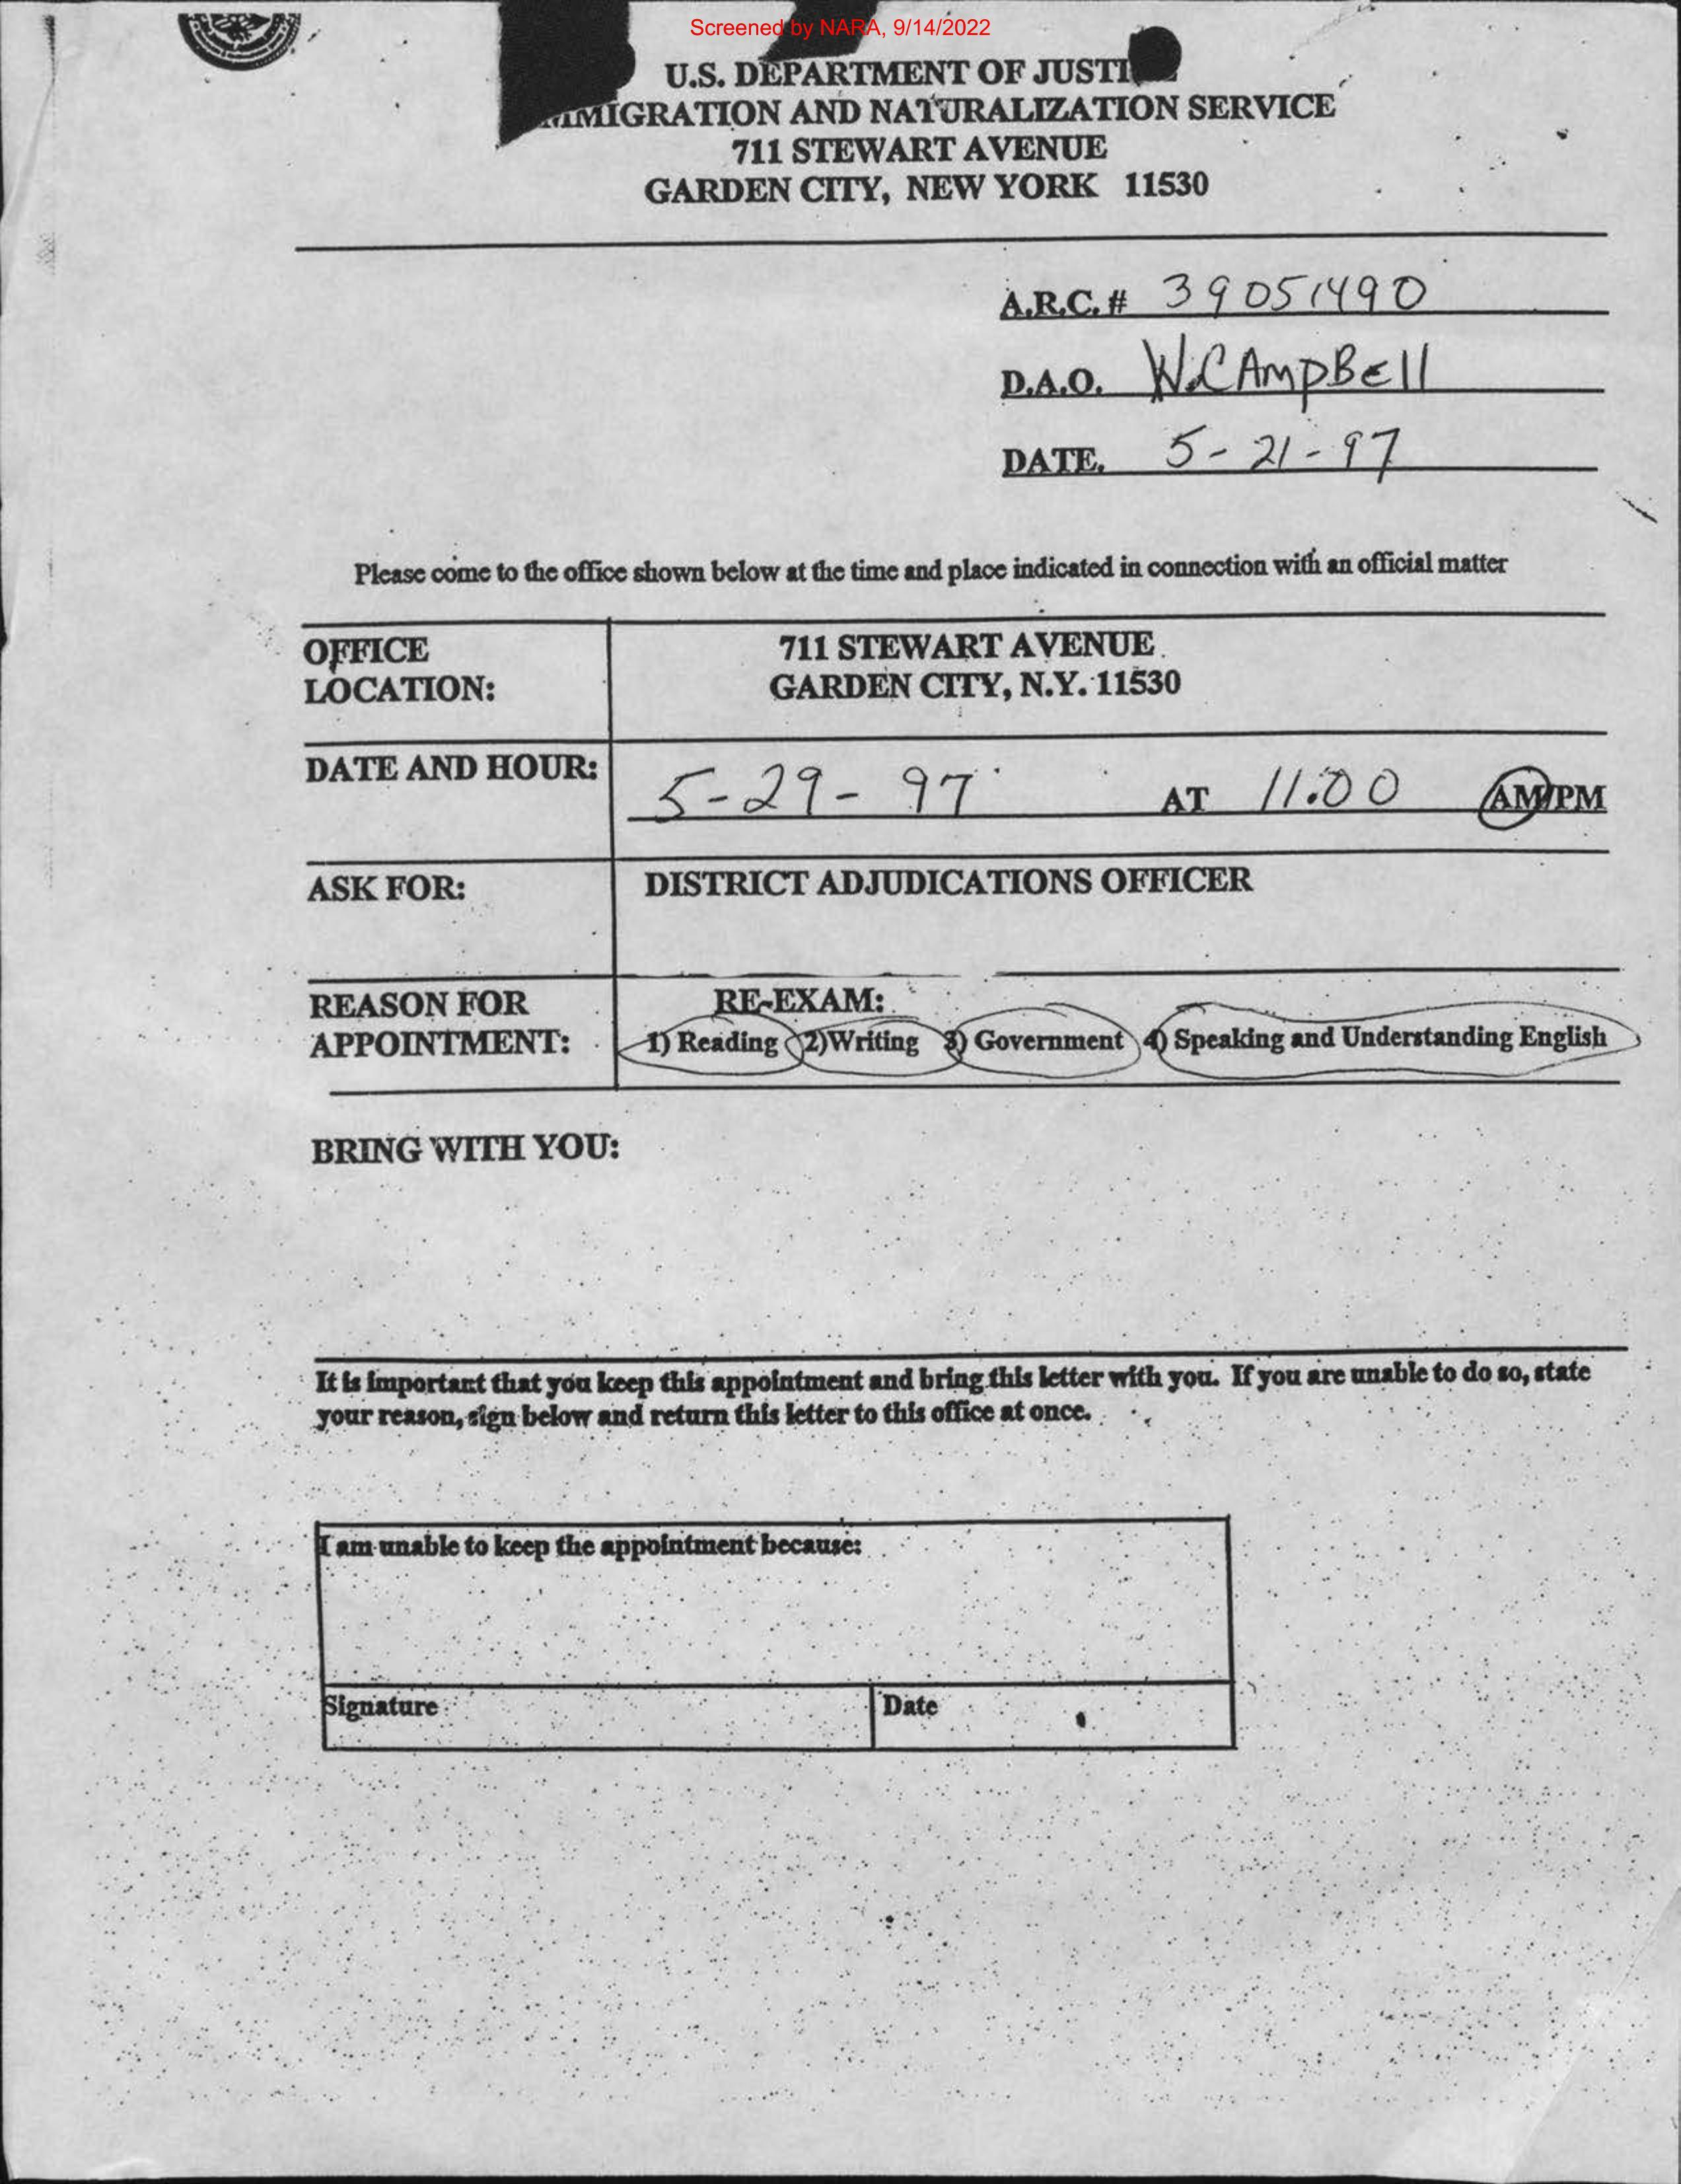 Screened by NARA, 9/14/2022
U.S. DEPARTMENT OF
AND NATURALIZATION SERVICE
711 STEWART AVENUE
GARDEN CITY, NEW YORK 11530
A.R.C. # 39051490
D.A.O. W.CAmpBEll
DATE. 5-21-97
Please come to the office shown below at the time and place indicated in connection with an official matter
OFFICE
LOCATION:
711 STEWART AVENUE
GARDEN CITY, N.Y. 11530
DATE AND HOUR: 5-29-97 AT 11:00 AM/PM
ASK FOR: DISTRICT ADJUDICATIONS OFFICER
REASON FOR
APPOINTMENT:
RE-EXAM:
1) Reading 2)Writing 3) Government 4) Speaking and Understanding English
BRING WITH YOU:
It is important that you keep this appointment and bring this letter with you. If you are unable to do so, state
your reason, sign below and return this letter to this office at once.
I am unable to keep the appointment because:
Signature Date